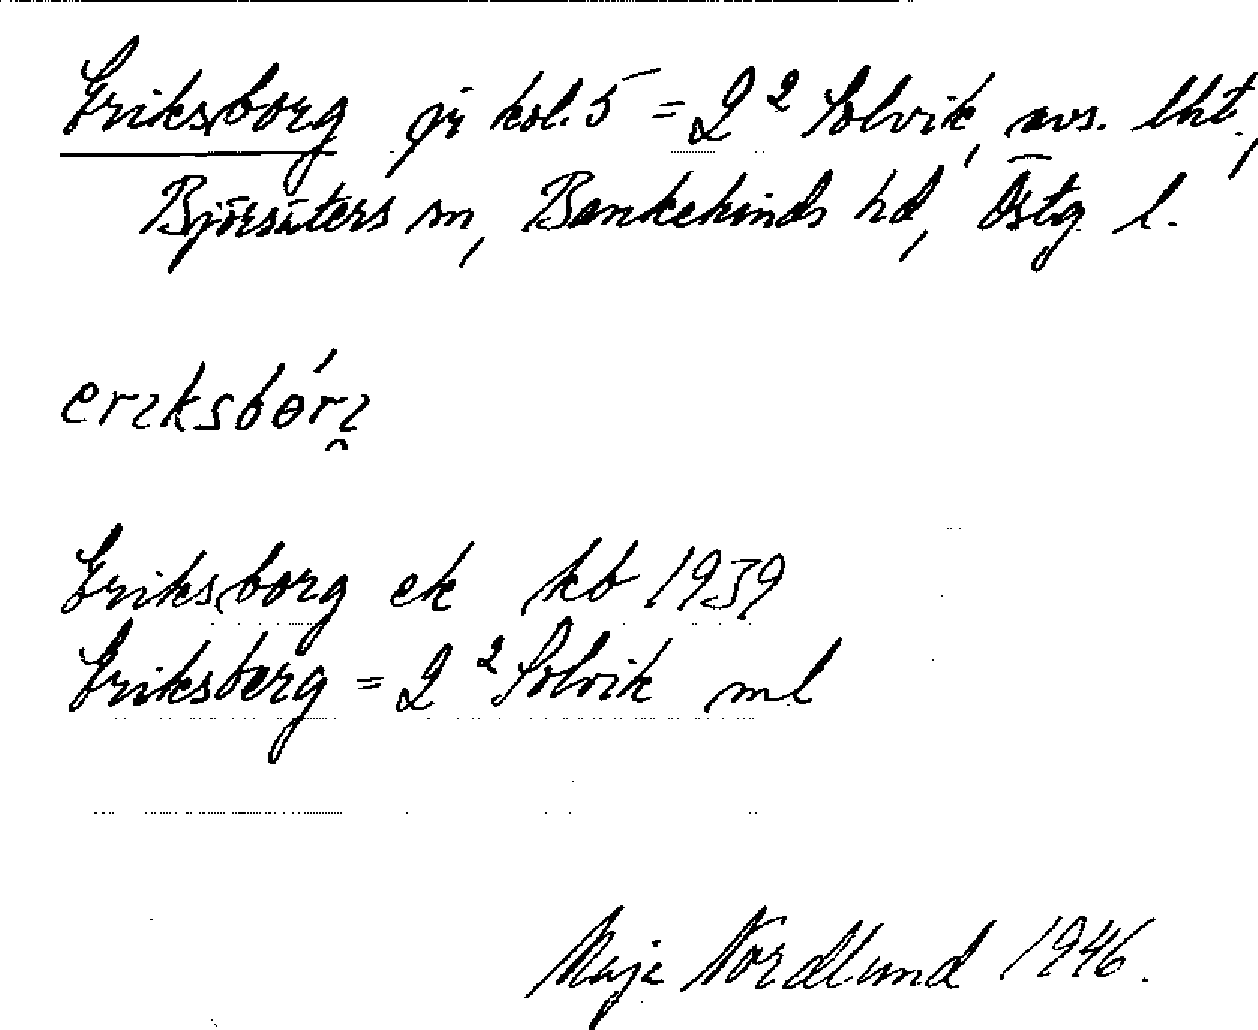 Eriksborg på kol. 5 = 2² Solvik, avs. lht,
Björsäters sn, Bankekinds hd, Östg. l.
eriksbórı
Eriksborg ek kb 1939
Eriksberg = 2² Solvik ml
Maja Nordlund 1946.